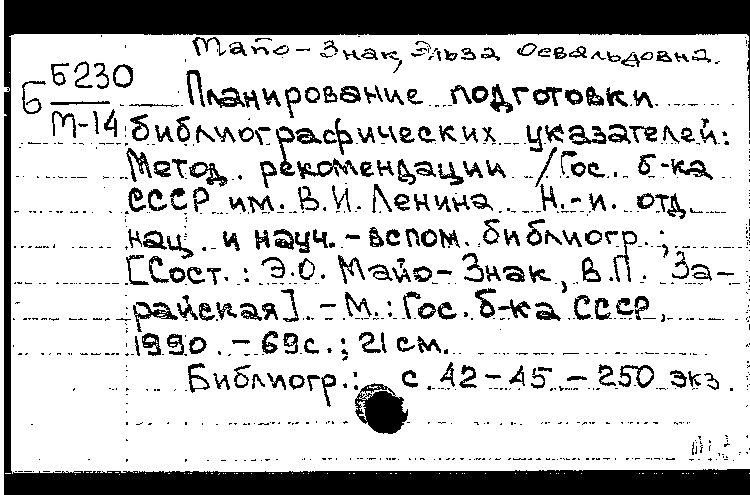 Майо-Знак, Эльза Освальдовна.
Б Б230
М-14
Планирование подготовки
библиографических указателей:
Метод. рекомендации /Гос. б-ка
СССР им. В.И. Ленина. Н.-и. отд.
нац. и науч.-вспом. библиогр.;
[Сост.: Э.О. Майо-Знак, В.П. За-
райская]. - М.: Гос. б-ка СССР,
1990. - 69с.; 21 см.
Библиогр.: с. 42-45 - 250 экз.